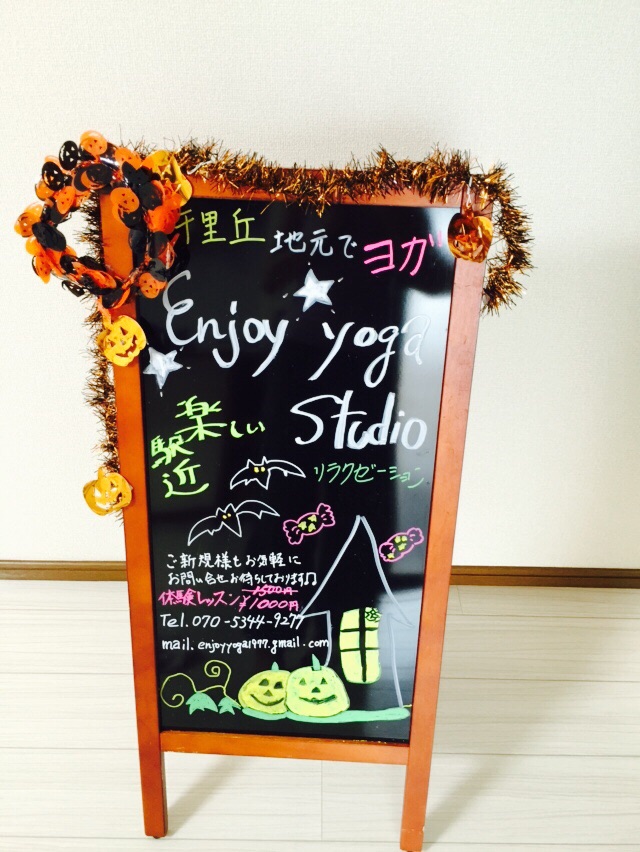 千里丘 地元で ヨガ
Enjoy yoga
Studio
楽しい
駅近
リラクゼーション
ご新規様もお気軽に
お問い合せお待ちしております♫
1500円
体験レッスン¥1000円
Tel. 070-5344-9277
mail. enjoyyoga1977.gmail.com